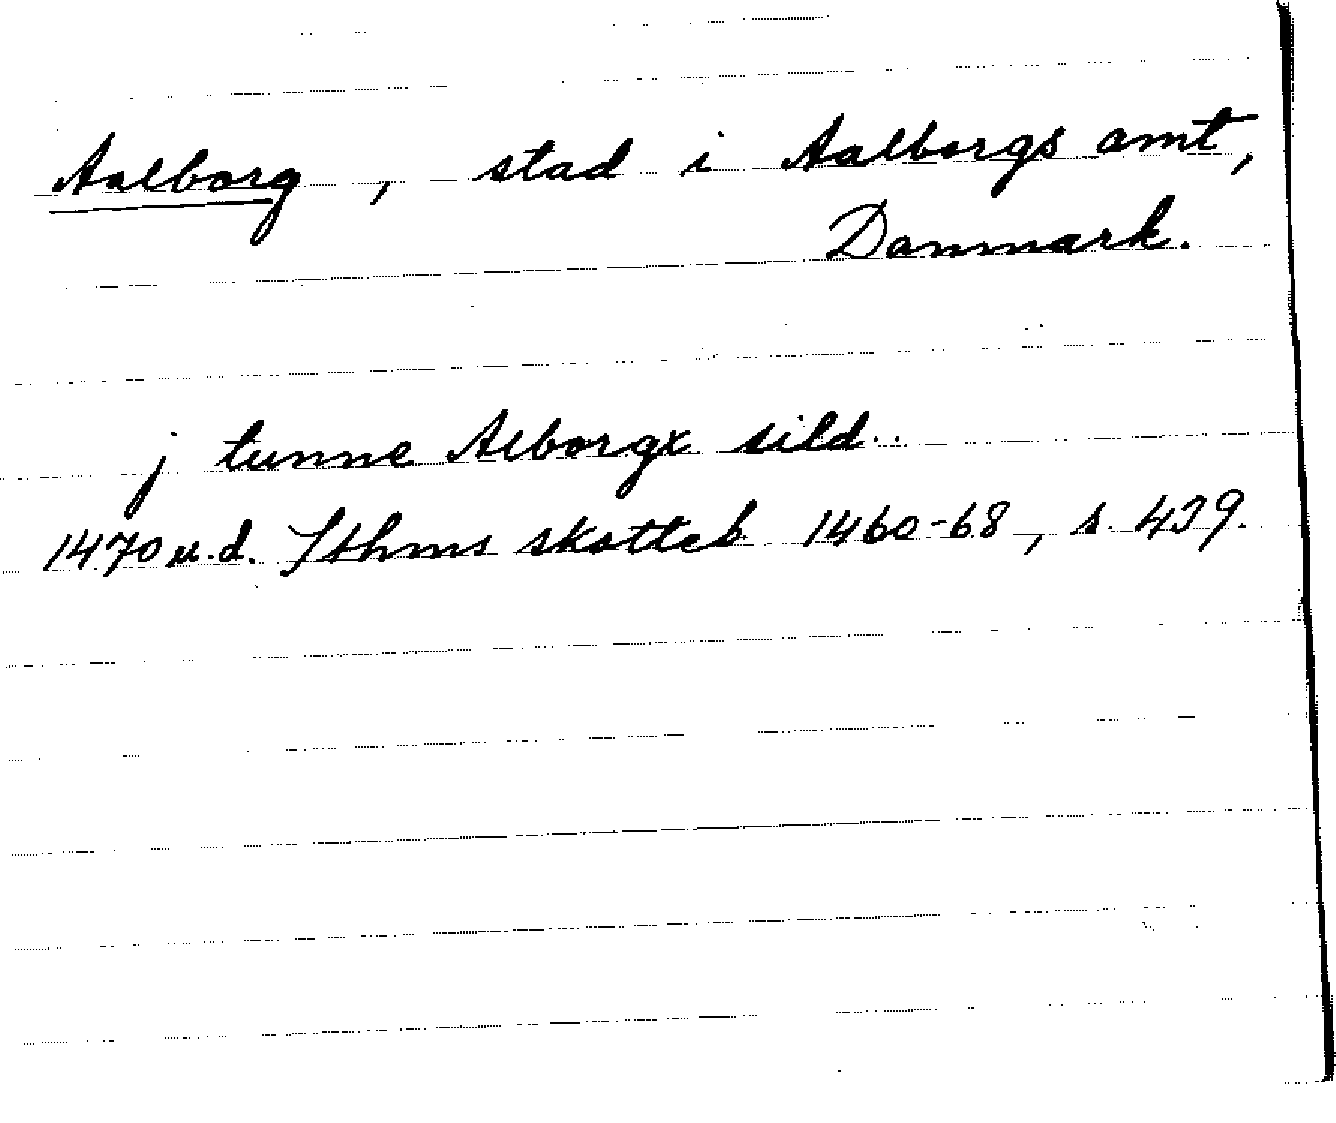 Aalborg, stad i Aalborgs amt,
Danmark.
j tunne Alborgx sild..
1470 u.d. Sthms skotteb 1460-68, s. 439.